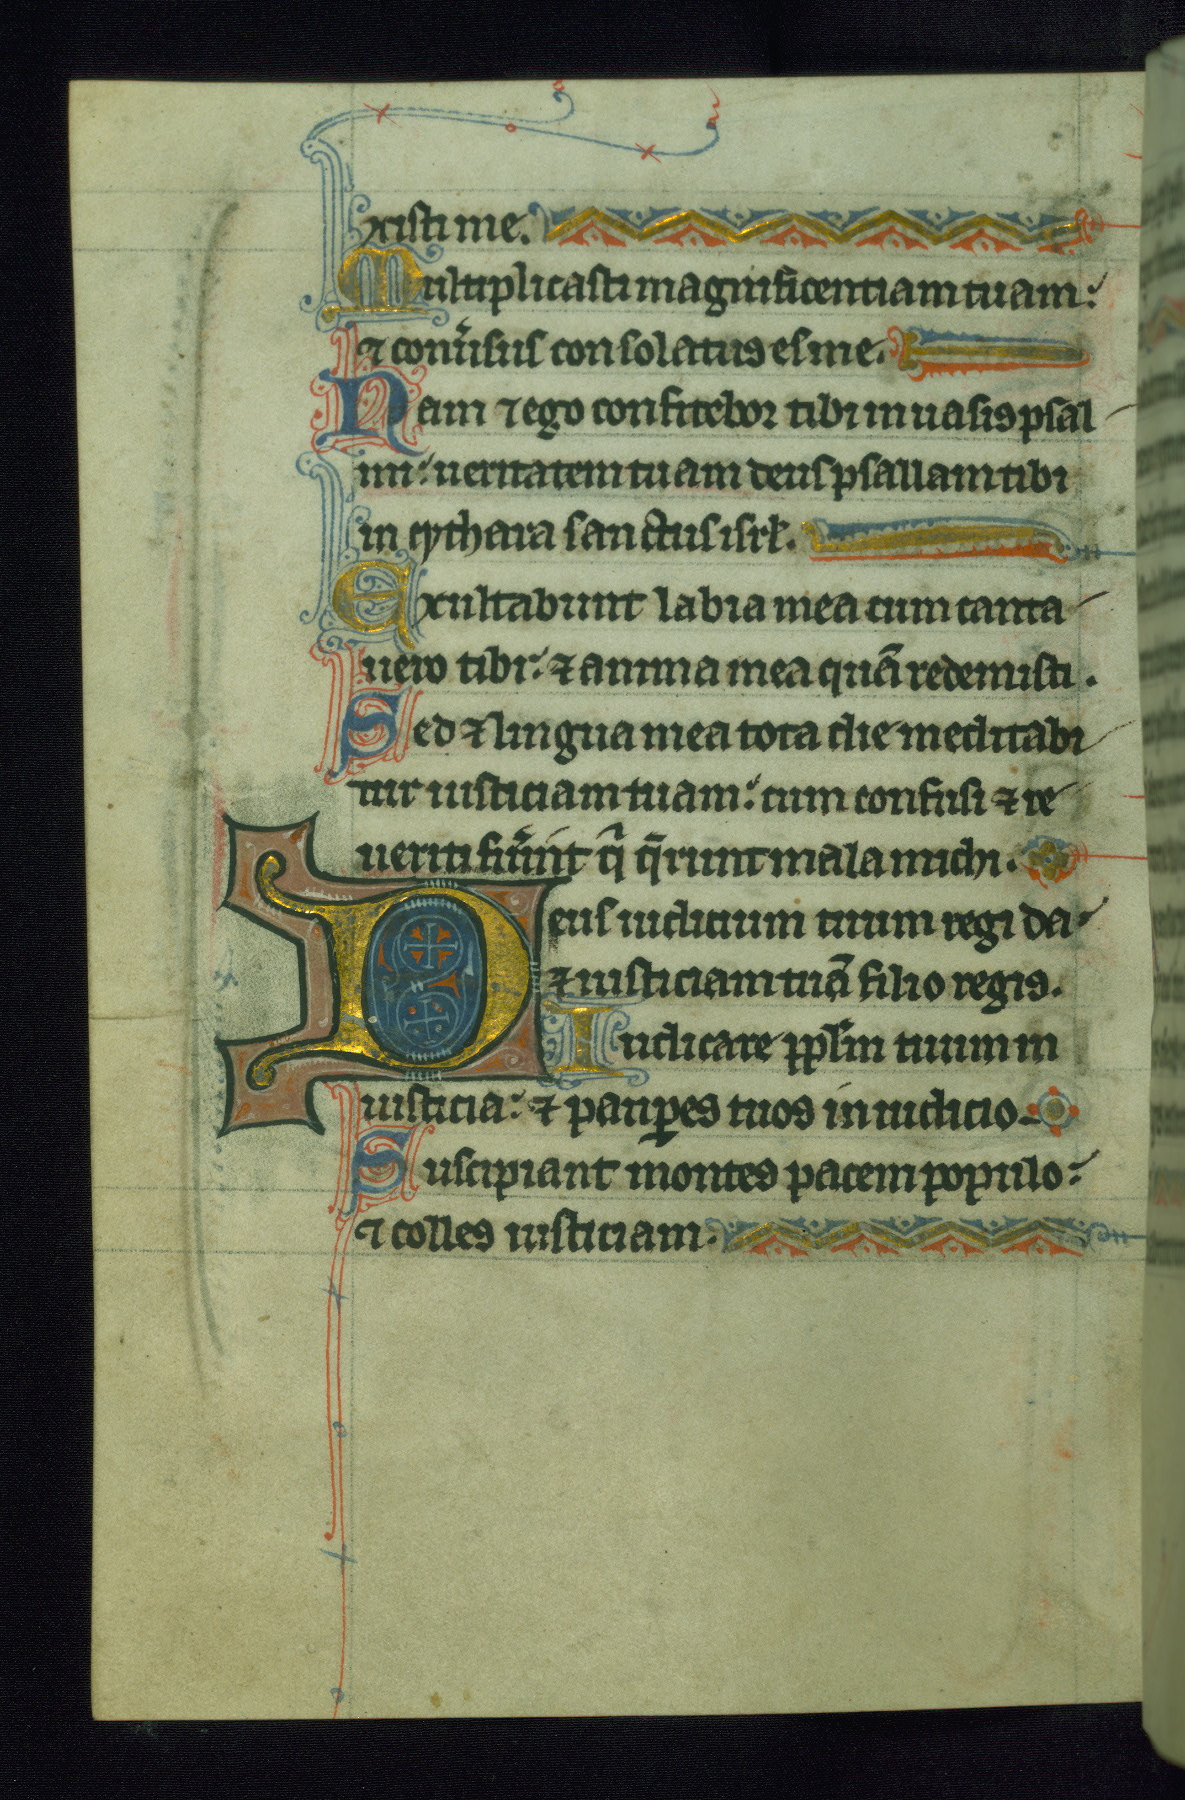 xisti me.
Multiplicasti magnificentiam tuam:
⁊ conu͛sus consolatus es me.
Nam ⁊ ego confitebor tibi in uasis psal
mi: ueritatem tuam deus psallam tibi
in cythara sanctus isrł.
Exultabunt labia mea cum canta
uero tibi: ⁊ anima mea quā redemisti.
Sed ⁊ lingua mea tota die meditabi
tur iusticiam tuam: cum confusi ⁊ re
ueriti fu͛int qͥ q̄runt mala michi.
Deus iudicium tuum regi da:
⁊ iusticiam tuā filio regis.
Iudicare ppl̄m tuum in
iusticia: ⁊ pauꝑes tuos in iudicio.
Suscipiant montes pacem populo:
⁊ colles iusticiam.